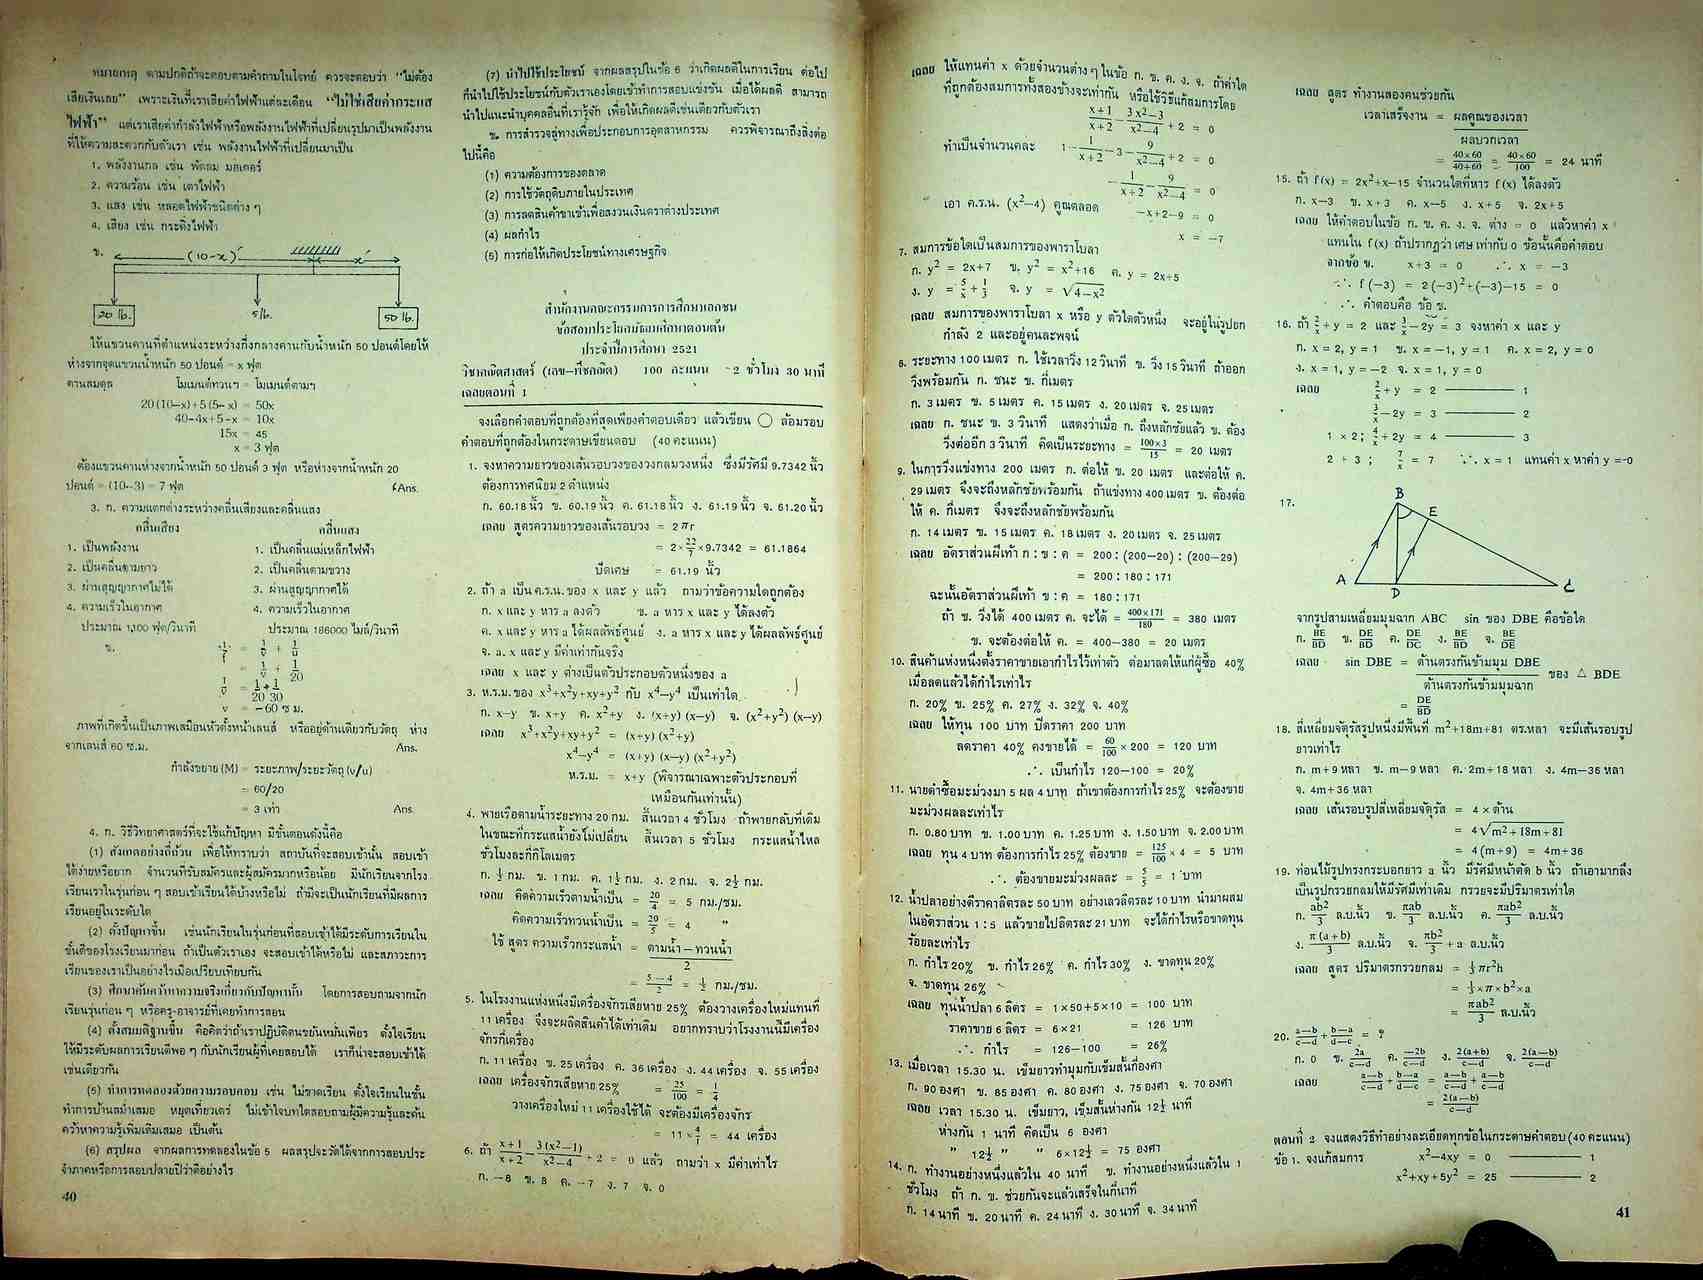 หมายเหตุ ตามปกติถ้าจะตอบตามคำถามในโจทย์ ควรจะตอบว่า "ไม่ต้อง
เสียเงินเลย" เพราะเงินที่เราเสียค่าไฟฟ้าแต่ละเดือน "ไม่ใช่เสียค่ากระแส
ไฟฟ้า" แต่เราเสียค่ากำลังไฟฟ้าหรือพลังงานไฟฟ้าที่เปลี่ยนรูปมาเป็นพลังงาน
ที่ให้ความสะดวกกับตัวเรา เช่น พลังงานไฟฟ้าที่เปลี่ยนมาเป็น
1. พลังงานกล เช่น พัดลม มอเตอร์
2. ความร้อน เช่น เตาไฟฟ้า
3. แสง เช่น หลอดไฟฟ้าชนิดต่าง ๆ
4. เสียง เช่น กระดิ่งไฟฟ้า
ข. (10-x)' x'
20 lb. 5 lb. 50 lb.
ให้แขวนคานที่ตำแหน่งระหว่างกึ่งกลางคานกับน้ำหนัก 50 ปอนด์โดยให้
ห่างจากจุดแขวนน้ำหนัก 50 ปอนด์ = x ฟุต
คานสมดุล โมเมนต์ทวนฯ = โมเมนต์ตามฯ
20(10-x)+5(5-x) = 50x
40-4x+5-x = 10x
15x = 45
x = 3 ฟุต
ต้องแขวนคานห่างจากน้ำหนัก 50 ปอนด์ 3 ฟุต หรือห่างจากน้ำหนัก 20
ปอนด์ = (10-3) = 7 ฟุต Ans.
3. ก. ความแตกต่างระหว่างคลื่นเสียงและคลื่นแสง
คลื่นเสียง คลื่นแสง
1. เป็นพลังงาน 1. เป็นคลื่นแม่เหล็กไฟฟ้า
2. เป็นคลื่นตามยาว 2. เป็นคลื่นตามขวาง
3. ผ่านสูญญากาศไม่ได้ 3. ผ่านสูญญากาศได้
4. ความเร็วในอากาศ 4. ความเร็วในอากาศ
ประมาณ 1,100 ฟุต/วินาที ประมาณ 186000 ไมล์/วินาที
ข. 1/f = 1/v + 1/u
= 1/v + 1/20
1/v = 1/20 + 1/30
v = -60 ซ.ม.
ภาพที่เกิดขึ้นเป็นภาพเสมือนหัวตั้งหน้าเลนส์ หรืออยู่ด้านเดียวกับวัตถุ ห่าง
จากเลนส์ 60 ซ.ม. Ans.
กำลังขยาย (M) = ระยะภาพ/ระยะวัตถุ (v/u)
= 60/20
= 3 เท่า Ans
4. ก. วิธีวิทยาศาสตร์ที่จะใช้แก้ปัญหา มีขั้นตอนดังนี้คือ
(1) สังเกตอย่างถี่ถ้วน เพื่อให้ทราบว่า สถาบันที่จะสอบเข้านั้น สอบเข้า
ได้ง่ายหรือยาก จำนวนที่รับสมัครและผู้สมัครมากหรือน้อย มีนักเรียนจากโรง
เรียนเราในรุ่นก่อน ๆ สอบเข้าเรียนได้บ้างหรือไม่ ถ้ามีจะเป็นนักเรียนที่มีผลการ
เรียนอยู่ในระดับใด
(2) ตั้งปัญหาขึ้น เช่นนักเรียนในรุ่นก่อนที่สอบเข้าได้มีระดับการเรียนใน
ชั้นดีของโรงเรียนมาก่อน ถ้าเป็นตัวเราเอง จะสอบเข้าได้หรือไม่ และสภาวะการ
เรียนของเราเป็นอย่างไรเมื่อเปรียบเทียบกัน
(3) ศึกษาค้นคว้าหาความจริงเกี่ยวกับปัญหานั้น โดยการสอบถามจากนัก
เรียนรุ่นก่อน ๆ หรือครู-อาจารย์ที่เคยทำการสอน
(4) ตั้งสมมติฐานขึ้น คือคิดว่าถ้าเราปฏิบัติตนขยันหมั่นเพียร ตั้งใจเรียน
ให้มีระดับผลการเรียนดีพอ ๆ กับนักเรียนผู้ที่เคยสอบได้ เราก็น่าจะสอบเข้าได้
เช่นเดียวกัน
(5) ทำการทดลองด้วยความรอบคอบ เช่น ไม่ขาดเรียน ตั้งใจเรียนในชั้น
ทำการบ้านสม่ำเสมอ หยุดเที่ยวเตร่ ไม่เข้าใจบทใดสอบถามผู้มีความรู้และค้น
คว้าหาความรู้เพิ่มเติมเสมอ เป็นต้น
(6) สรุปผล จากผลการทดลองในข้อ 5 ผลสรุปจะวัดได้จากการสอบประ
จำภาคหรือการสอบปลายปีว่าดีอย่างไร
40
(7) นำไปใช้ประโยชน์ จากผลสรุปในข้อ 6 ว่าเกิดผลดีในการเรียน ต่อไป
ก็นำไปใช้ประโยชน์กับตัวเราเองโดยเข้าทำการสอบแข่งขัน เมื่อได้ผลดี สามารถ
นำไปแนะนำบุคคลอื่นที่เรารู้จัก เพื่อให้เกิดผลดีเช่นเดียวกับตัวเรา
ข. การสำรวจลู่ทางเพื่อประกอบการอุตสาหกรรม ควรพิจารณาถึงสิ่งต่อ
ไปนี้คือ
(1) ความต้องการของตลาด
(2) การใช้วัตถุดิบภายในประเทศ
(3) การลดสินค้าขาเข้าเพื่อสงวนเงินตราต่างประเทศ
(4) ผลกำไร
(5) การก่อให้เกิดประโยชน์ทางเศรษฐกิจ
สำนักงานคณะกรรมการการศึกษาเอกชน
ข้อสอบประโยคมัธยมศึกษาตอนต้น
ประจำปีการศึกษา 2521
วิชาคณิตศาสตร์ (เลข-พีชคณิต) 100 คะแนน 2 ชั่วโมง 30 นาที
เฉลยตอนที่ 1
จงเลือกคำตอบที่ถูกต้องที่สุดเพียงคำตอบเดียว แล้วเขียน ◯ ล้อมรอบ
คำตอบที่ถูกต้องในกระดาษเขียนตอบ (40 คะแนน)
1. จงหาความยาวของเส้นรอบวงของวงกลมวงหนึ่ง ซึ่งมีรัศมี 9.7342 นิ้ว
ต้องการทศนิยม 2 ตำแหน่ง
ก. 60.18 นิ้ว ข. 60.19 นิ้ว ค. 61.18 นิ้ว ง. 61.19 นิ้ว จ. 61.20 นิ้ว
เฉลย สูตรความยาวของเส้นรอบวง = 2πr
= 2×22/7×9.7342 = 61.1864
ปัดเศษ = 61.19 นิ้ว
2. ถ้า a เป็น ค.ร.น. ของ x และ y แล้ว ถามว่าข้อความใดถูกต้อง
ก. x และ y หาร a ลงตัว ข. a หาร x และ y ได้ลงตัว
ค. x และ y หาร a ได้ผลลัพธ์ศูนย์ ง. a หาร x และ y ได้ผลลัพธ์ศูนย์
จ. a, x และ y มีค่าเท่ากันจริง
เฉลย x และ y ต่างเป็นตัวประกอบตัวหนึ่งของ a
3. ห.ร.ม. ของ x³+x²y+xy+y² กับ x⁴-y⁴ เป็นเท่าใด
ก. x-y ข. x+y ค. x²+y ง. (x+y) (x-y) จ. (x²+y²) (x-y)
เฉลย x³+x²y+xy+y² = (x+y) (x²+y)
x⁴-y⁴ = (x+y) (x-y) (x²+y²)
ห.ร.ม. = x+y (พิจารณาเฉพาะตัวประกอบที่
เหมือนกันเท่านั้น)
4. พายเรือตามน้ำระยะทาง 20 กม. สิ้นเวลา 4 ชั่วโมง ถ้าพายกลับที่เดิม
ในขณะที่กระแสน้ำยังไม่เปลี่ยน สิ้นเวลา 5 ชั่วโมง กระแสน้ำไหล
ชั่วโมงละกี่กิโลเมตร
ก. ½ กม. ข. 1 กม. ค. 1½ กม. ง. 2 กม. จ. 2½ กม.
เฉลย คิดความเร็วตามน้ำเป็น = 20/4 = 5 กม./ชม.
คิดความเร็วทวนน้ำเป็น = 20/5 = 4 "
ใช้ สูตร ความเร็วกระแสน้ำ = ตามน้ำ - ทวนน้ำ
2
= 5-4/2 = ½ กม./ชม.
5. ในโรงงานแห่งหนึ่งมีเครื่องจักรเสียหาย 25% ต้องวางเครื่องใหม่แทนที่
11 เครื่อง จึงจะผลิตสินค้าได้เท่าเดิม อยากทราบว่าโรงงานนี้มีเครื่อง
จักรกี่เครื่อง
ก. 11 เครื่อง ข. 25 เครื่อง ค. 36 เครื่อง ง. 44 เครื่อง จ. 55 เครื่อง
เฉลย เครื่องจักรเสียหาย 25% = 25/100 = 1/4
วางเครื่องใหม่ 11 เครื่องใช้ได้ จะต้องมีเครื่องจักร
= 11×4/1 = 44 เครื่อง
6. ถ้า x+1/x+2 - 3(x²-1)/x²-4 + 2 = 0 แล้ว ถามว่า x มีค่าเท่าไร
ก. -8 ข. 8 ค. -7 ง. 7 จ. 0
เฉลย ให้แทนค่า x ด้วยจำนวนต่าง ๆ ในข้อ ก. ข. ค. ง. จ. ถ้าค่าใด
ที่ถูกต้องสมการทั้งสองข้างจะเท่ากัน หรือใช้วิธีแก้สมการโดย
x+1/x+2 - 3x²-3/x²-4 + 2 = 0
ทำเป็นจำนวนคละ 1-1/x+2-3-9/x²-4+2 = 0
-1/x+2-9/x²-4 = 0
เอา ค.ร.น. (x²-4) คูณตลอด -x+2-9 = 0
x = -7
7. สมการข้อใดเป็นสมการของพาราโบลา
ก. y² = 2x+7 ข. y² = x²+16 ค. y = 2x+5
ง. y = 5/x+1/3 จ. y = √4-x²
เฉลย สมการของพาราโบลา x หรือ y ตัวใดตัวหนึ่ง จะอยู่ในรูปยก
กำลัง 2 และอยู่คนละพจน์
8. ระยะทาง 100 เมตร ก. ใช้เวลาวิ่ง 12 วินาที ข. วิ่ง 15 วินาที ถ้าออก
วิ่งพร้อมกัน ก. ชนะ ข. กี่เมตร
ก. 3 เมตร ข. 5 เมตร ค. 15 เมตร ง. 20 เมตร จ. 25 เมตร
เฉลย ก. ชนะ ข. 3 วินาที แสดงว่าเมื่อ ก. ถึงหลักชัยแล้ว ข. ต้อง
วิ่งต่ออีก 3 วินาที คิดเป็นระยะทาง = 100×3/15 = 20 เมตร
9. ในการวิ่งแข่งทาง 200 เมตร ก. ต่อให้ ข. 20 เมตร และต่อให้ ค.
29 เมตร จึงจะถึงหลักชัยพร้อมกัน ถ้าแข่งทาง 400 เมตร ข. ต้องต่อ
ให้ ค. กี่เมตร จึงจะถึงหลักชัยพร้อมกัน
ก. 14 เมตร ข. 15 เมตร ค. 18 เมตร ง. 20 เมตร จ. 25 เมตร
เฉลย อัตราส่วนฝีเท้า ก : ข : ค = 200 : (200-20) : (200-29)
= 200 : 180 : 171
ฉะนั้นอัตราส่วนฝีเท้า ข : ค = 180 : 171
ถ้า ข. วิ่งได้ 400 เมตร ค. จะได้ = 400×171/180 = 380 เมตร
ข. จะต้องต่อให้ ค. = 400-380 = 20 เมตร
10. สินค้าแห่งหนึ่งตั้งราคาขายเอากำไรไว้เท่าตัว ต่อมาลดให้แก่ผู้ซื้อ 40%
เมื่อลดแล้วได้กำไรเท่าไร
ก. 20% ข. 25% ค. 27% ง. 32% จ. 40%
เฉลย ให้ทุน 100 บาท ปิดราคา 200 บาท
ลดราคา 40% คงขายได้ = 60/100 × 200 = 120 บาท
∴ เป็นกำไร 120-100 = 20%
11. นายดำซื้อมะม่วงมา 5 ผล 4 บาท ถ้าเขาต้องการกำไร 25% จะต้องขาย
มะม่วงผลละเท่าไร
ก. 0.80 บาท ข. 1.00 บาท ค. 1.25 บาท ง. 1.50 บาท จ. 2.00 บาท
เฉลย ทุน 4 บาท ต้องการกำไร 25% ต้องขาย = 125/100 × 4 = 5 บาท
∴ ต้องขายมะม่วงผลละ = 5/5 = 1 บาท
12. น้ำปลาอย่างดีราคาลิตรละ 50 บาท อย่างเลวลิตรละ 10 บาท นำมาผสม
ในอัตราส่วน 1 : 5 แล้วขายไปลิตรละ 21 บาท จะได้กำไรหรือขาดทุน
ร้อยละเท่าไร
ก. กำไร 20% ข. กำไร 26% ค. กำไร 30% ง. ขาดทุน 20%
จ. ขาดทุน 26%
เฉลย ทุนน้ำปลา 6 ลิตร = 1×50+5×10 = 100 บาท
ราคาขาย 6 ลิตร = 6×21 = 126 บาท
∴ กำไร = 126-100 = 26%
13. เมื่อเวลา 15.30 น. เข็มยาวทำมุมกับเข็มสั้นกี่องศา
ก. 90 องศา ข. 85 องศา ค. 80 องศา ง. 75 องศา จ. 70 องศา
เฉลย เวลา 15.30 น. เข็มยาว, เข็มสั้นห่างกัน 12½ นาที
ห่างกัน 1 นาที คิดเป็น 6 องศา
" 12½ " " 6×12½ = 75 องศา
14. ก. ทำงานอย่างหนึ่งแล้วใน 40 นาที ข. ทำงานอย่างหนึ่งแล้วใน 1
ชั่วโมง ถ้า ก. ข. ช่วยกันจะแล้วเสร็จในกี่นาที
ก. 14 นาที ข. 20 นาที ค. 24 นาที ง. 30 นาที จ. 34 นาที
เฉลย สูตร ทำงานสองคนช่วยกัน
เวลาเสร็จงาน = ผลคูณของเวลา
ผลบวกเวลา
= 40×60/40+60 = 40×60/100 = 24 นาที
15. ถ้า f(x) = 2x²+x-15 จำนวนใดที่หาร f(x) ได้ลงตัว
ก. x-3 ข. x+3 ค. x-5 ง. x+5 จ. 2x+5
เฉลย ให้คำตอบในข้อ ก. ข. ค. ง. จ. ต่าง = 0 แล้วหาค่า x
แทนใน f(x) ถ้าปรากฏว่า เศษ เท่ากับ 0 ข้อนั้นคือคำตอบ
จากข้อ ข. x+3 = 0 ∴ x = -3
∵ f(-3) = 2(-3)²+(-3)-15 = 0
∴ คำตอบคือ ข้อ ข.
16. ถ้า 2/x+y = 2 และ 3/x-2y = 3 จงหาค่า x และ y
ก. x = 2, y = 1 ข. x = -1, y = 1 ค. x = 2, y = 0
ง. x = 1, y = -2 จ. x = 1, y = 0
เฉลย 2/x+y = 2 ——— 1
3/x-2y = 3 ——— 2
1 × 2 ; 4/x+2y = 4 ——— 3
2 + 3 ; 7/x = 7 ∵ x = 1 แทนค่า x หาค่า y = 0
17.
B
E
A D C
จากรูปสามเหลี่ยมมุมฉาก ABC sin ของ DBE คือข้อใด
ก. BE/BD ข. DE/BD ค. DE/DC ง. BE/BD จ. BE/DE
เฉลย sin DBE = ด้านตรงกันข้ามมุม DBE
ด้านตรงกันข้ามมุมฉาก ของ △ BDE
= DE/BD
18. สี่เหลี่ยมจัตุรัสรูปหนึ่งมีพื้นที่ m²+18m+81 ตร.หลา จะมีเส้นรอบรูป
ยาวเท่าไร
ก. m+9 หลา ข. m-9 หลา ค. 2m+18 หลา ง. 4m-36 หลา
จ. 4m+36 หลา
เฉลย เส้นรอบรูปสี่เหลี่ยมจัตุรัส = 4 × ด้าน
= 4√m²+18m+81
= 4(m+9) = 4m+36
19. ท่อนไม้รูปทรงกระบอกยาว a นิ้ว มีรัศมีหน้าตัด b นิ้ว ถ้าเอามากลึง
เป็นรูปกรวยกลมให้มีรัศมีเท่าเดิม กรวยจะมีปริมาตรเท่าใด
ก. ab²/3 ล.บ.นิ้ว ข. πab/3 ล.บ.นิ้ว ค. πab²/3 ล.บ.นิ้ว
ง. π(a+b)/3 ล.บ.นิ้ว จ. πb²/3+a ล.บ.นิ้ว
เฉลย สูตร ปริมาตรกรวยกลม = ⅓πr²h
= ⅓×π×b²×a
= πab²/3 ล.บ.นิ้ว
20. a-b/c-d + b-a/d-c = ?
ก. 0 ข. 2a/c-d ค. -2b/c-d ง. 2(a+b)/c-d จ. 2(a-b)/c-d
เฉลย a-b/c-d + b-a/d-c = a-b/c-d + a-b/c-d
= 2(a-b)/c-d
ตอนที่ 2 จงแสดงวิธีทำอย่างละเอียดทุกข้อในกระดาษคำตอบ (40 คะแนน)
ข้อ 1. จงแก้สมการ x²-4xy = 0 ——— 1
x²+xy+5y² = 25 ——— 2
41